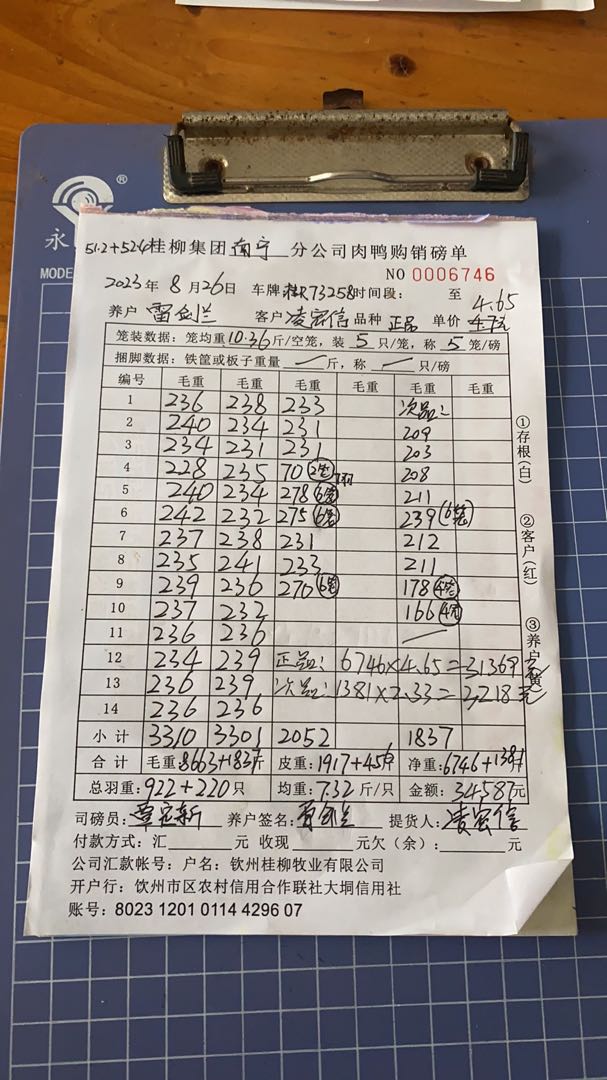 永
®
MODE
512+524桂柳集团南宁分公司肉鸭购销磅单
NO 0006746
2023年8月26日 车牌桂R73258时间段： 至
4.65
养户 雷剑兰 客户 凌宏信 品种 正品 单价
笼装数据：笼均重10.36斤/空笼，装5只/笼，称5笼/磅
捆脚数据：铁筐或板子重量 斤，称 只/磅
编号 毛重 毛重 毛重 毛重 毛重 毛重
1 236 238 233 次品：
2 240 234 231 209
3 234 231 231 203
4 228 235 70 (2笼) 208
5 240 234 278 (6笼) 211
6 242 232 275 (6笼) 239 (6笼)
7 237 238 231 212
8 235 241 233 211
9 239 236 270 (6笼) 178 (4笼)
10 237 232 166 (4笼)
11 236 236
12 234 239 正品：6746×4.65=31369元
13 236 239 次品：1381×2.33=3218元
14 236 236
小计 3310 3301 2052 1837
合计 毛重：8663+1837斤 皮重：1917+456 净重：6746+1381斤
总羽重：922+220只 均重：7.32斤/只 金额：34587元
司磅员： 养户签名： 提货人：凌宏信
付款方式：汇 元 收现 元欠（余）： 元
公司汇款帐号：户名：钦州桂柳牧业有限公司
开户行：钦州市区农村信用合作联社大垌信用社
账号：8023 1201 0114 4296 07
①存根(白)
②客户(红)
③养户(黄)